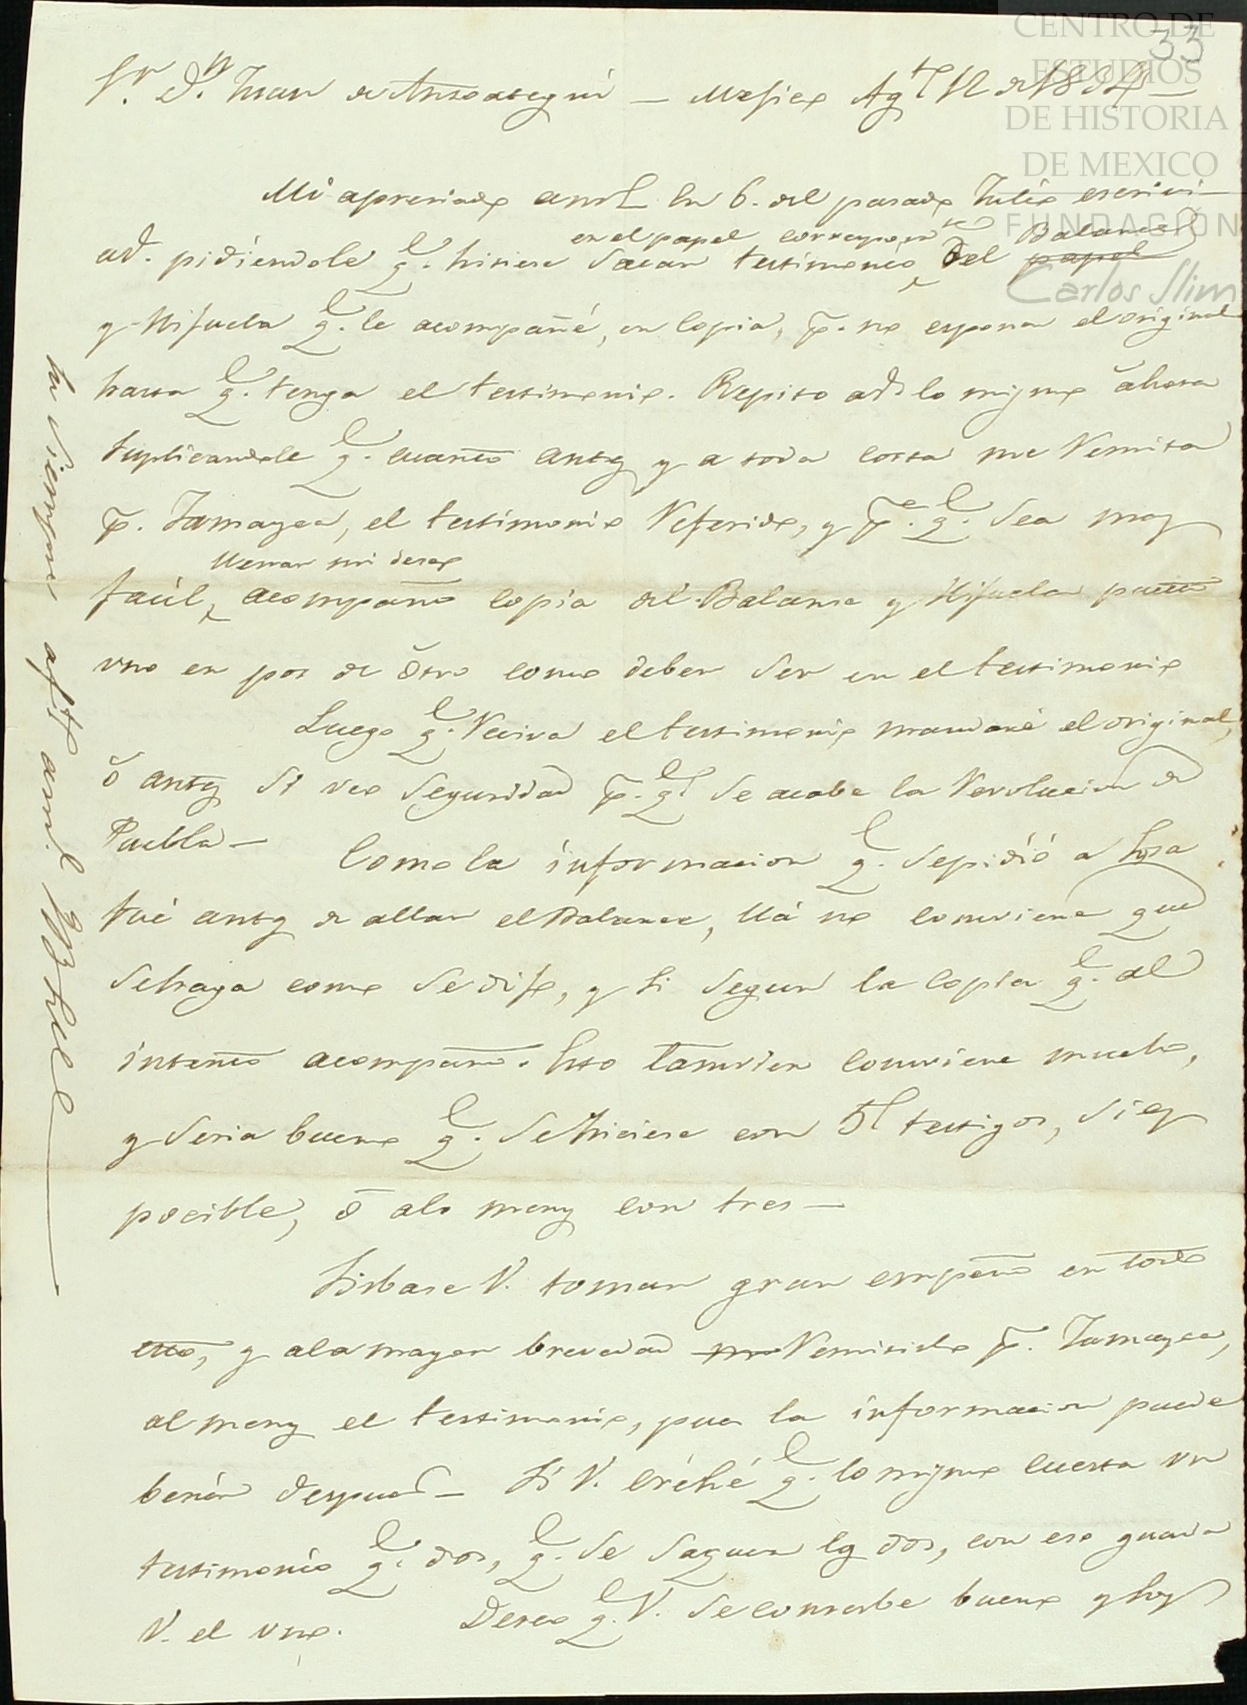 33
CENTRO DE
ESTUDIOS
DE HISTORIA
DE MEXICO
FUNDACIÓN
Carlos Slim
Sr. Dn. Juan de Ansoategui — Mexico Agto 12 de 1834
Mi apreciado amo. En 6. del pasado Julio escrivi
en el papel correspondte Balance
a V. pidiendole q. hisiese Sacar testimonio, del papel
y Hijuela q. le acompañé, en Copia, p. no esponer el original
hasta q. tenga el testimonio. Repito a V. lo mismo ahora
Suplicandole q. cuanto antes y a toda costa me Remita
p. Jamayca, el testimonio Referido, y pa. q. Sea mas
llenar mi deseo
facil, acompaño copia del Balance y Hijuela puesto
uno en pos de otro como deber Ser en el testimonio
Luego q. Reciva el testimonio mandaré el original,
ó antes Si veo Seguridad p. q. Se acabe la Revolucion de
Puebla — Como la informacion q. Se pidió a esa
fué antes de allar el Balance, llá no conviene que
Se haga como Se dijo, y Si Segun la copia q. al
intento acompaño. Esto tamvien conviene mucho,
y Seria bueno q. Se hiciese con 5 testigos, Si es
pocible, ó alo menos con tres —
Sirbase V. tomar gran empeño en todo
esto, y ala mayor brevedad Remitirlo p. Jamayca,
al menos el testimonio, pues la informacion puede
benir despues — Si V. crehé q. lo mismo cuesta un
testimonio q. dos, q. Se Saquen los dos, con eso guarda
V. el uno. Deseo q. V. Se conserbe bueno y soy
Su Siempre afto amo.